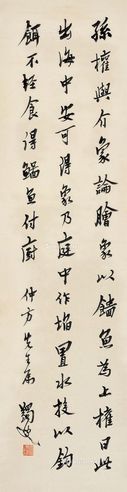 孫權與介象論膾象以鯔魚為上權曰此
出海中安可得象乃庭中作埳置水投以鉤
餌不經食得鯔魚付廚　仲方先生屬